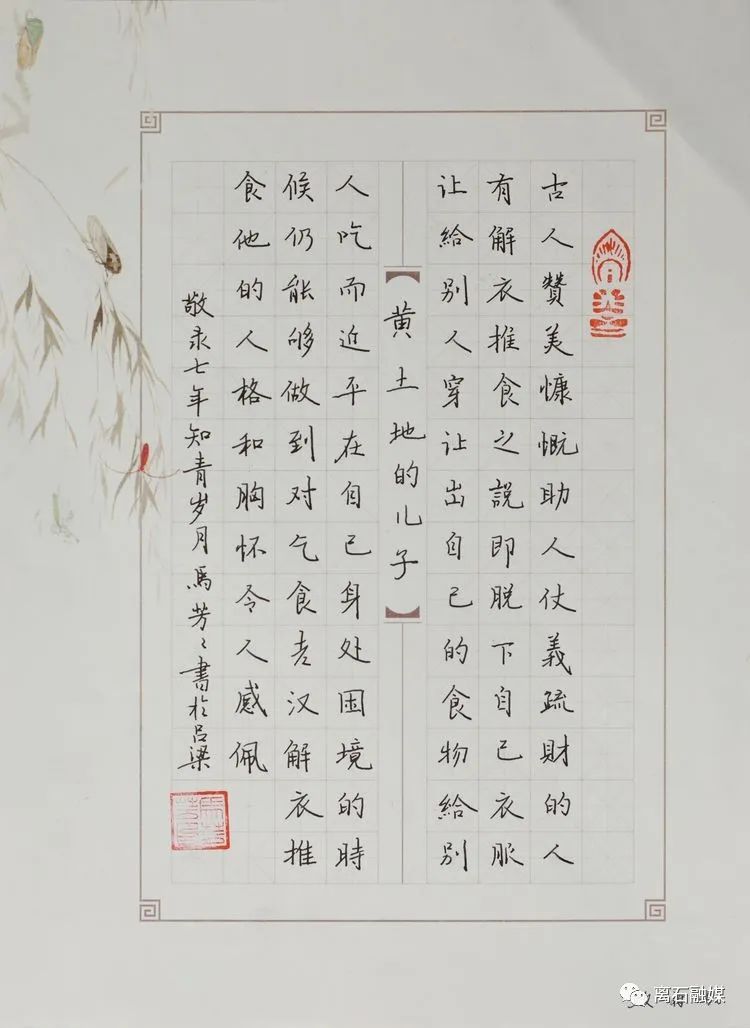 古人贊美慷慨助人仗義疏財的人
有解衣推食之説即脱下自己衣服
让給别人穿让出自己的食物給别
【黄土地的儿子】
人吃而近平在自己身处困境的時
候仍能够做到对乞食老汉解衣推
食他的人格和胸怀令人感佩
敬录七年知青岁月馬芳々書於吕梁
离石融媒